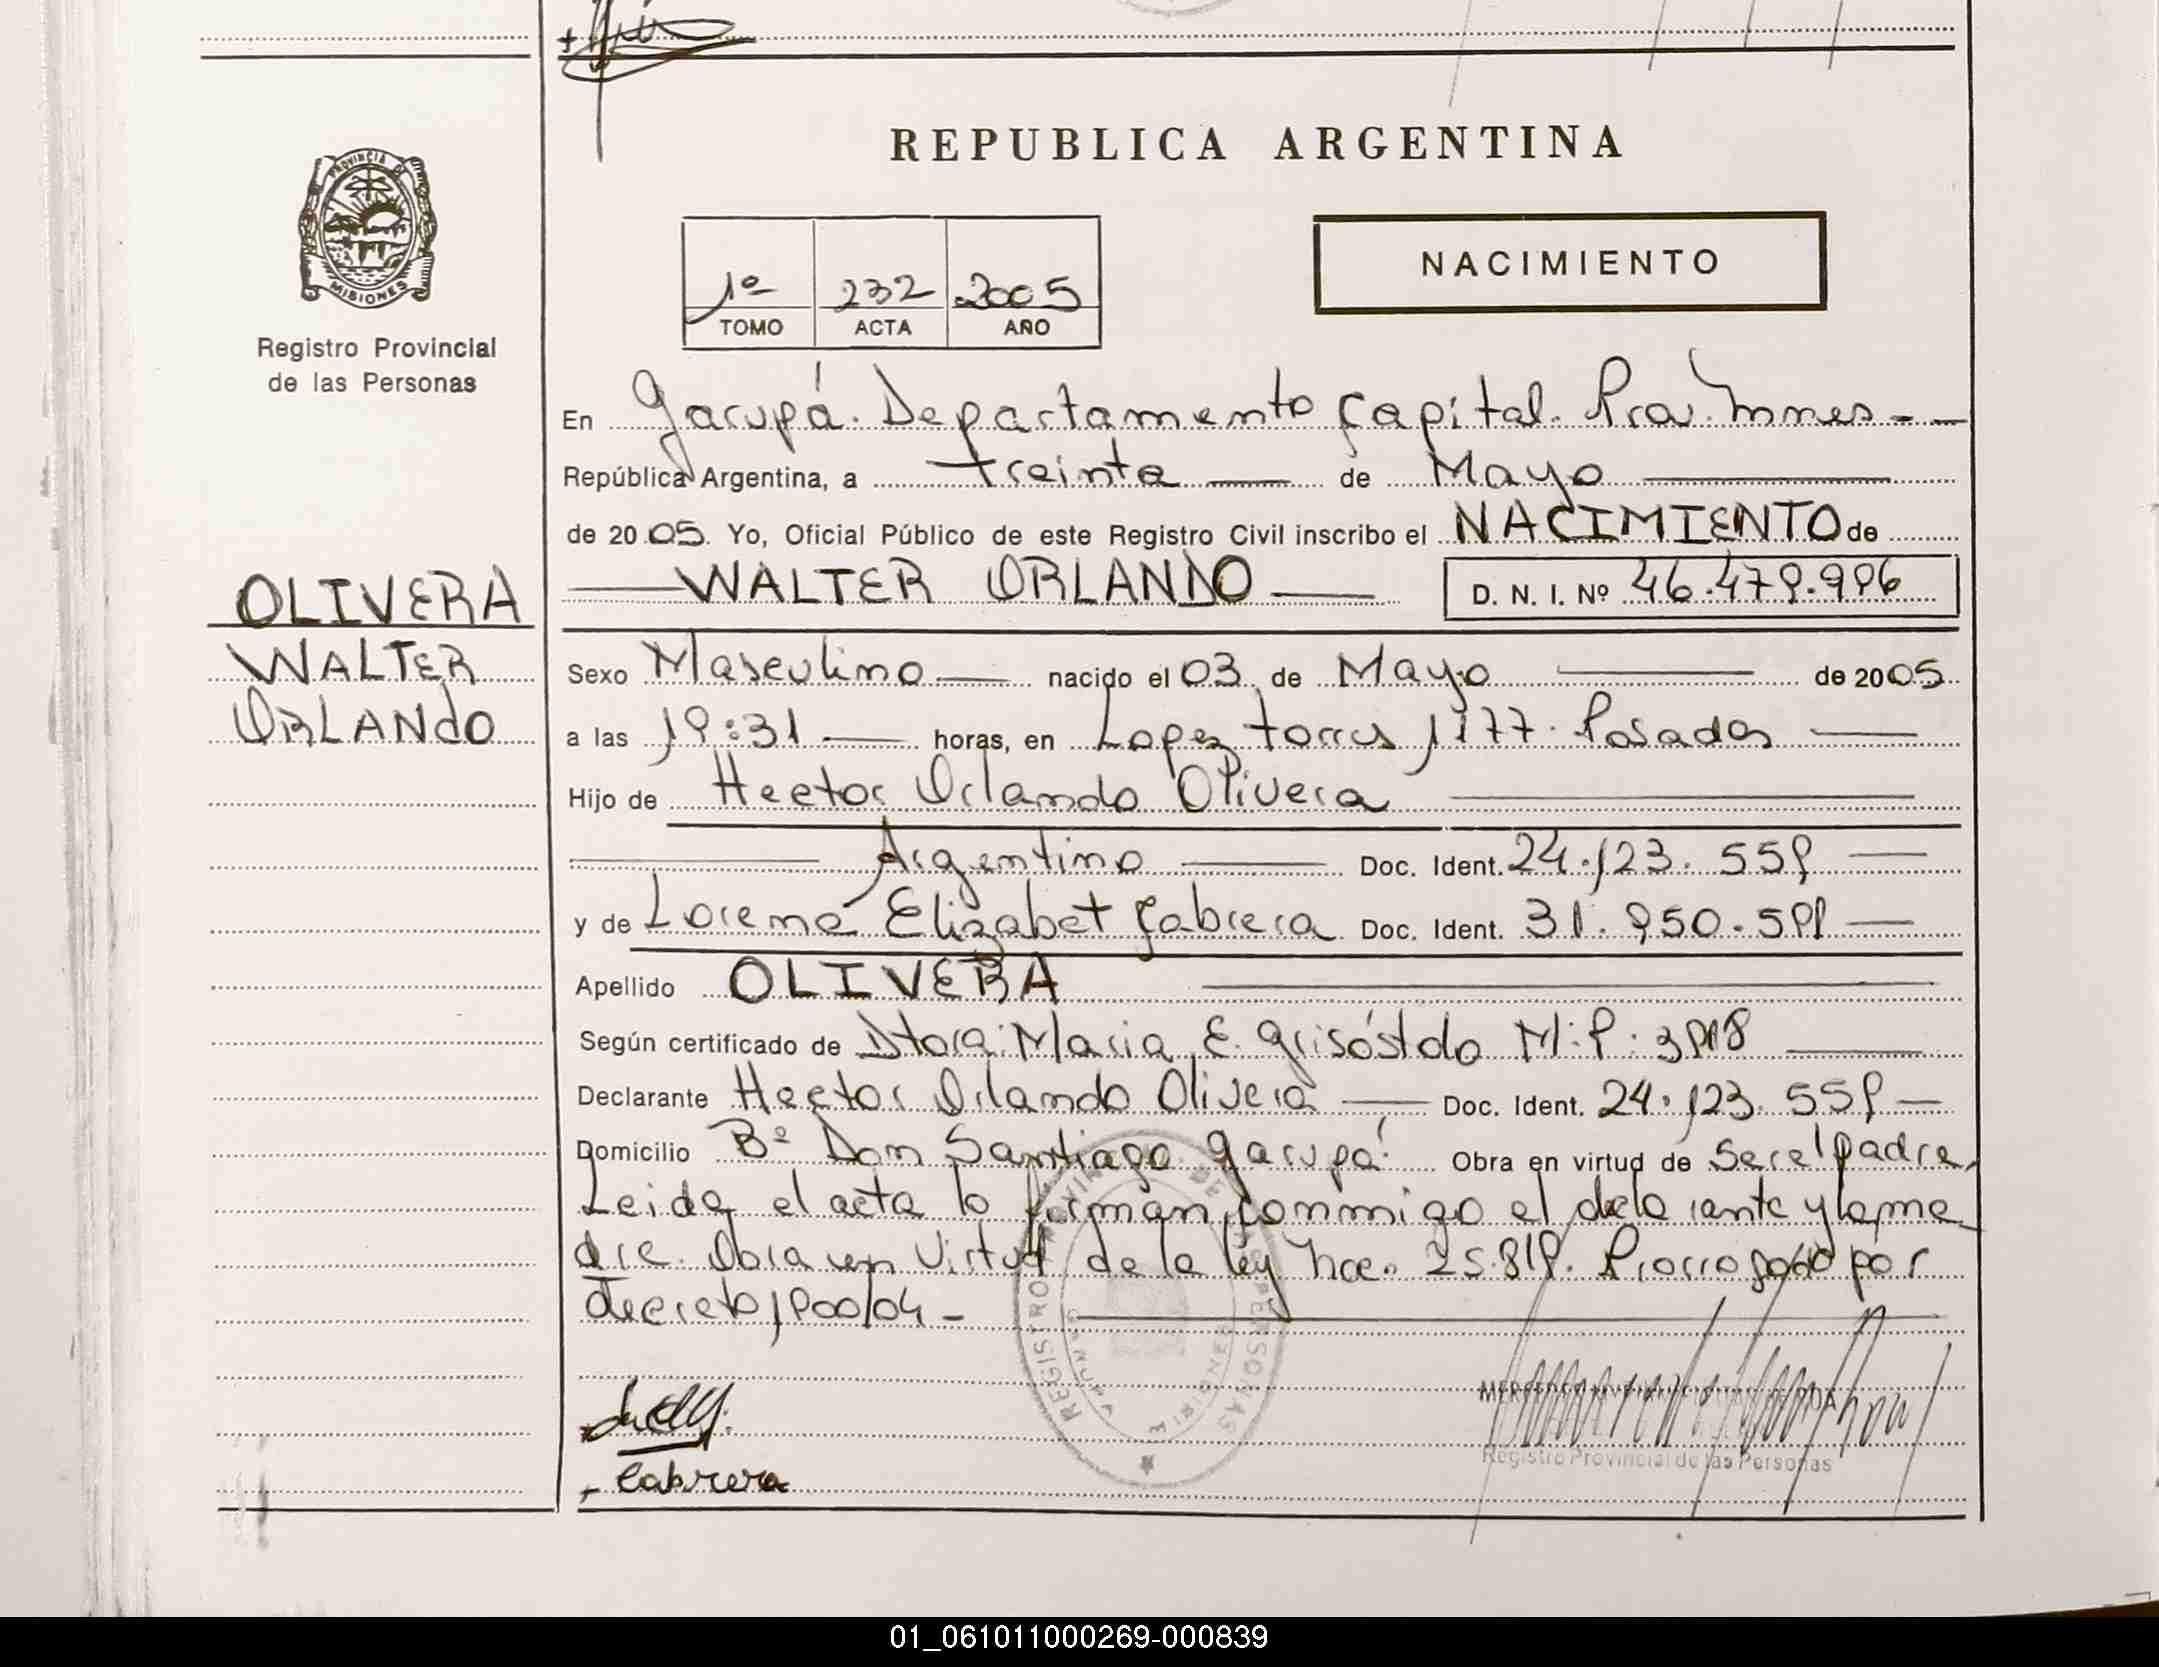 REPUBLICA ARGENTINA
PROVINCIA DE
MISIONES
Registro Provincial
de las Personas
1º 232 2005
TOMO ACTA AÑO
NACIMIENTO
En Garupá. Departamento Capital. Prov. Mnes - —
República Argentina, a treinta — de Mayo —
de 2005. Yo, Oficial Público de este Registro Civil inscribo el NACIMIENTO de
— WALTER ORLANDO — D. N. I. Nº 46.479.996
OLIVERA
WALTER
ORLANDO
Sexo Masculino — nacido el 03 de Mayo — de 2005
a las 19:31 — horas, en Lopez torres 1177. Posadas —
Hijo de Hector Orlando Olivera —
— Argentino — Doc. Ident. 24.123.559 —
y de Lorena Elizabet Cabrera Doc. Ident. 31.950.591 —
Apellido OLIVERA —
Según certificado de Dtora: Maria E. Grisóstolo M:P: —
Declarante Hector Orlando Olivera — Doc. Ident. 24.123.559 —
Domicilio Bº Don Santiago Garupá. Obra en virtud de Ser el padre.
Leida el acta lo firman conmigo el declarante y la ma
dre. Obra en virtud de la ley nro. 25.819. Prorrogado por
decreto 1900/04 - —
REGISTRO PROVINCIAL DE LAS PERSONAS
MISIONES
Cabrera
Registro Provincial de las Personas
01_061011000269-000839